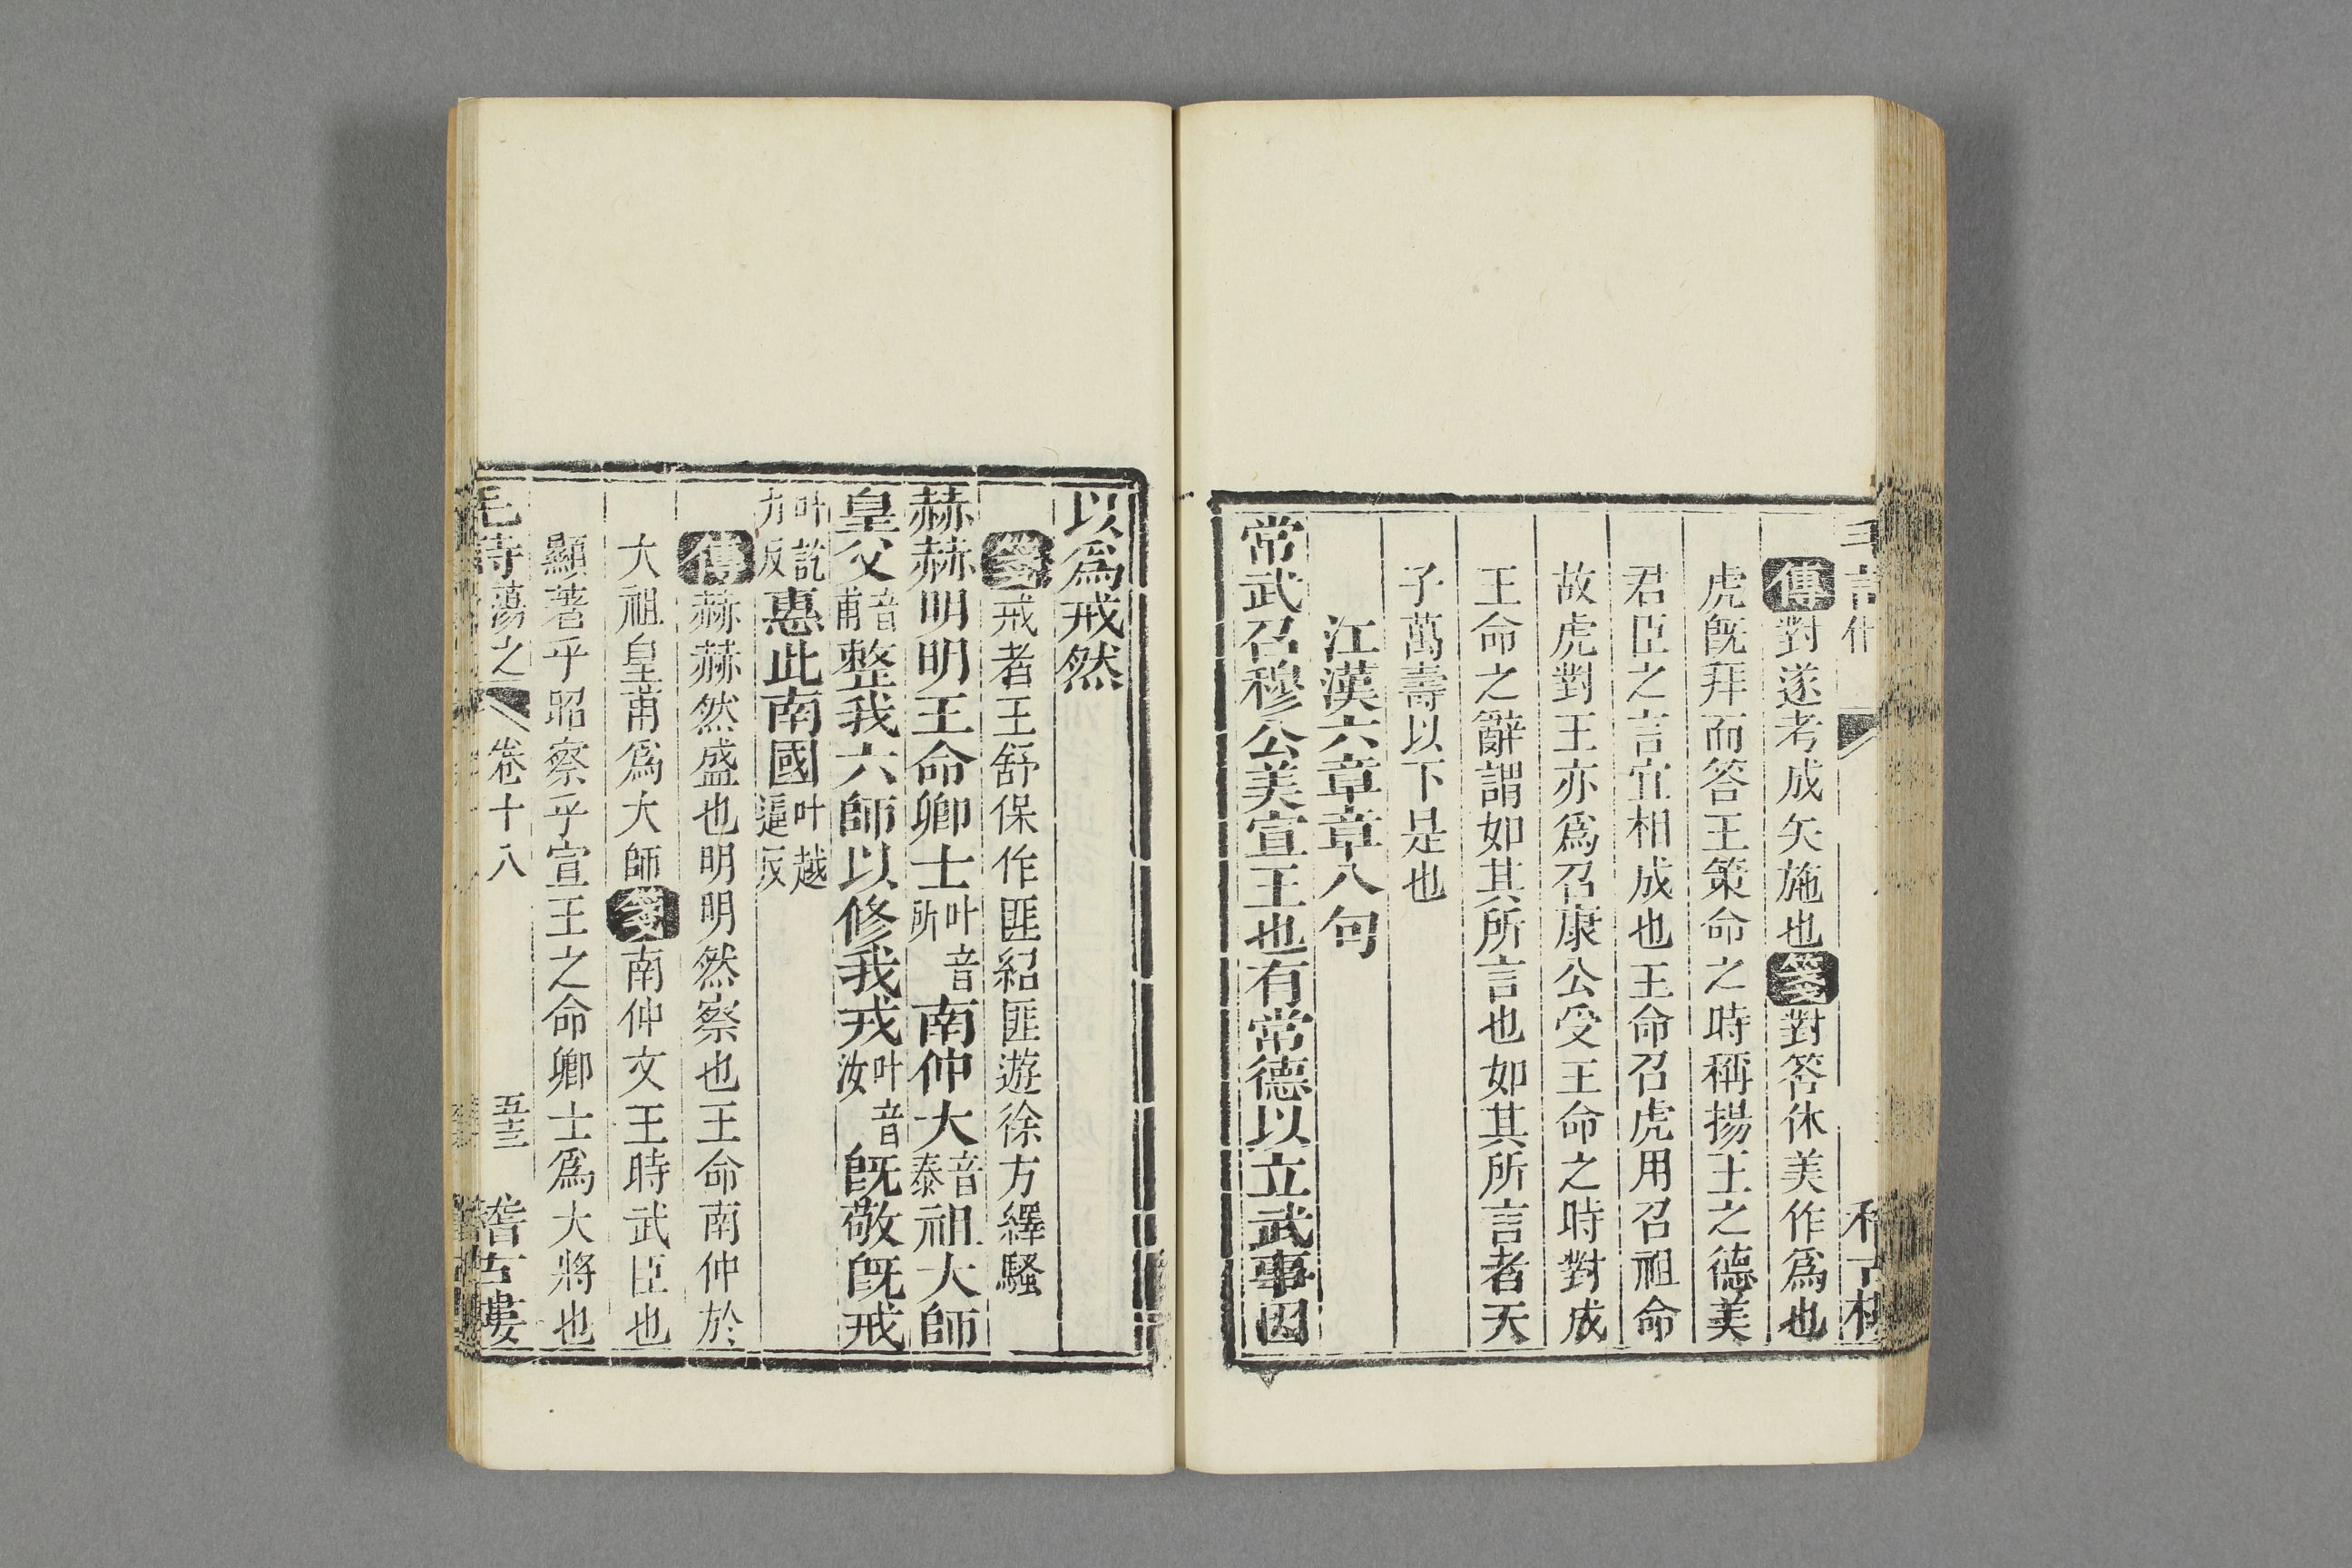 傳對遂考成矢施也箋對答休美作爲也
虎既拜而答王策命之時稱揚王之德美
君臣之言宜相成也王命召虎用召祖命
故虎對王亦爲召康公受王命之時對成
王命之辭謂如其所言也如其所言者天
子萬壽以下是也
江漢六章章八句
常武召穆公美宣王也有常德以立武事因
以爲戒然
箋戒者王舒保作匪紹匪遊徐方繹騷
赫赫明明王命卿士叶音所南仲大音泰祖大師
皇父音甫整我六師以修我戎叶音汝既敬既戒
叶訖力反惠此南國叶越逼反
傳赫赫然盛也明明然察也王命南仲於
大祖皇甫爲大師箋南仲文王時武臣也
顯著乎昭察乎宣王之命卿士爲大將也
毛詩蕩之 卷十八 五十三 稽古樓